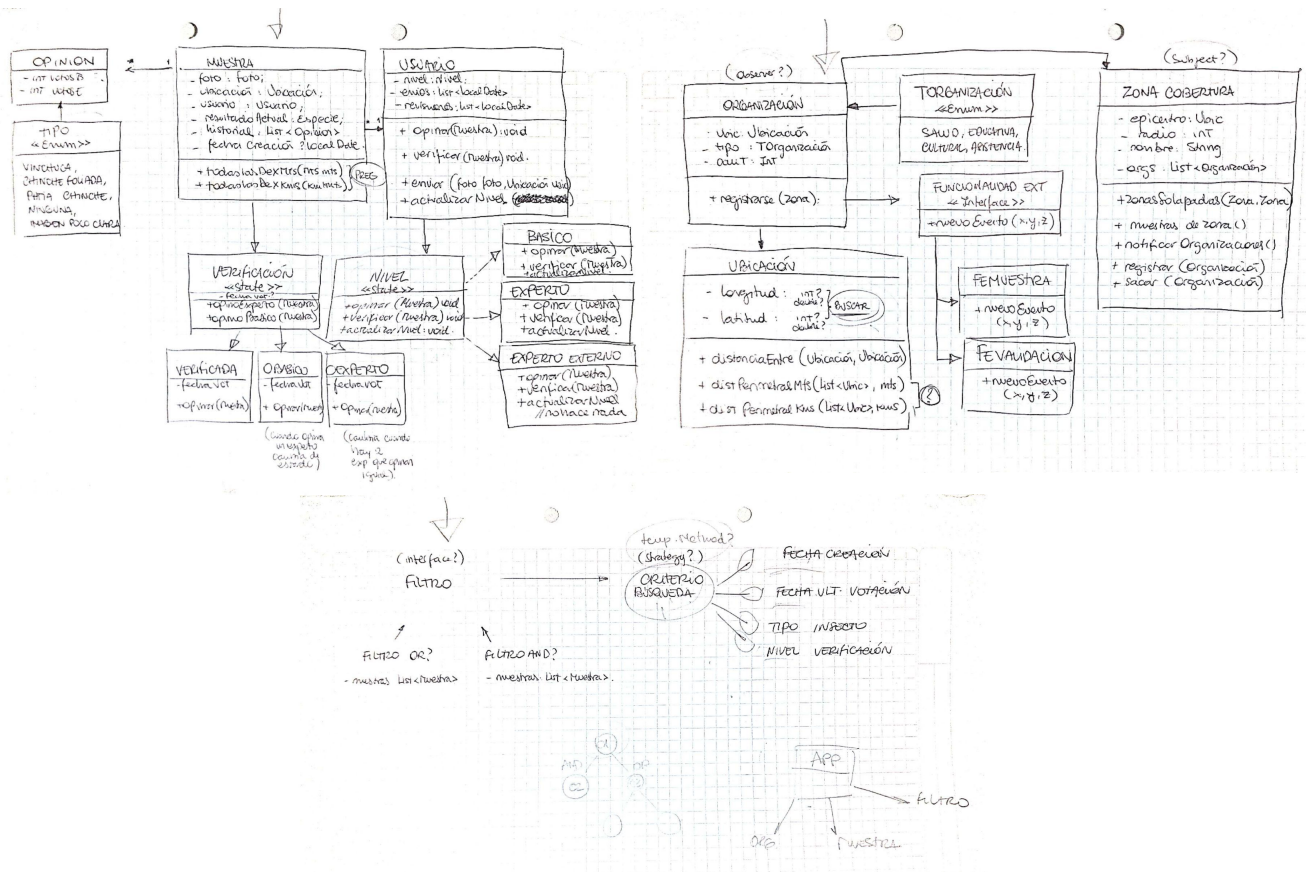 OPINION
- INT VOTOSB
- INT VOTOSE
TIPO
<<Enum>>
VINCHUCA,
CHINCHE FOLIADA,
PHTIA CHINCHE,
NINGUNA,
IMAGEN POCO CLARA
* 1
MUESTRA
- foto : Foto;
- Ubicación : Ubicación;
- usuario : Usuario;
- resultado Actual : Especie;
- historial : List <Opinion>
- fecha Creación ? Local Date.
+ todas las DexMts (mts mts)
+ todas las DexKms (kms mts)
PREG
* 1
USUARIO
- nivel : Nivel;
- envios : List <local Date>
- revisiones : List <local Date>
+ opinar (Muestra): void
+ verificar (Muestra) void.
+ enviar (foto foto, Ubicación ubic)
+ actualizar Nivel
VERIFICACIÓN
<<state>>
- fecha vot?
+ opinoExperto (Muestra)
+ opino Basico (Muestra)
NIVEL
<<state>>
+ opinar (Muestra) void
+ verificar (Muestra) void
+ actualizar Nivel : void.
BASICO
+ opinar (Muestra)
+ verificar (Muestra)
+ actualizar Nivel.
EXPERTO
+ opinar (Muestra)
+ verificar (Muestra)
+ actualizar Nivel.
EXPERTO EXTERNO
+ opinar (Muestra)
+ verificar (Muestra)
+ actualizar Nivel
// no hace nada
VERIFICADA
- fecha vot
+ opinar (Muestra)
OBASICO
- fecha vot
+ opinar (Muest)
(cuando opina
un experto
cambia de
estado)
OEXPERTO
- fecha vot
+ opinar (Muestra)
(cambia cuando
hay 2
exp que opinan
iguales).
(Observer?)
ORGANIZACIÓN
- Ubic : Ubicación
- tipo : TOrganización
- cant : Int
+ registrarse (zona):
TORGANIZACIÓN
<<Enum>>
SALUD, EDUCATIVA,
CULTURAL, ASISTENCIA.
FUNCIONALIDAD EXT
<<Interface>>
+ nuevo Evento (x,y,z)
FEMUESTRA
+ nuevo Evento
(x,y,z)
FEVALIDACION
+ nuevo Evento
(x,y,z)
UBICACIÓN
- longitud : int?
double?
- latitud : int?
double?
BUSCAR
+ distancia Entre (Ubicación, Ubicación)
+ dist Perimetral Mts (List<Ubic>, mts)
+ dist Perimetral Kms (List<Ubic>, kms)
?
(Subject?)
ZONA COBERTURA
- epicentro : Ubic
- radio : INT
- nombre : String
- orgs : List <Organización>
+ zonas Solapadas (Zona, Zona)
+ muestras de zona ()
+ notificar Organizaciones ()
+ registrar (Organización)
+ sacar (Organización)
(interface?)
FILTRO
FILTRO OR?
- muestras List <Muestra>
FILTRO AND?
- muestras List <Muestra>.
temp. Method?
(strategy?)
CRITERIO
BÚSQUEDA
FECHA CREACIÓN
FECHA ULT. VOTACIÓN
TIPO INSECTO
NIVEL VERIFICACIÓN
AND
OR
C2
APP
FILTRO
ORG
MUESTRA